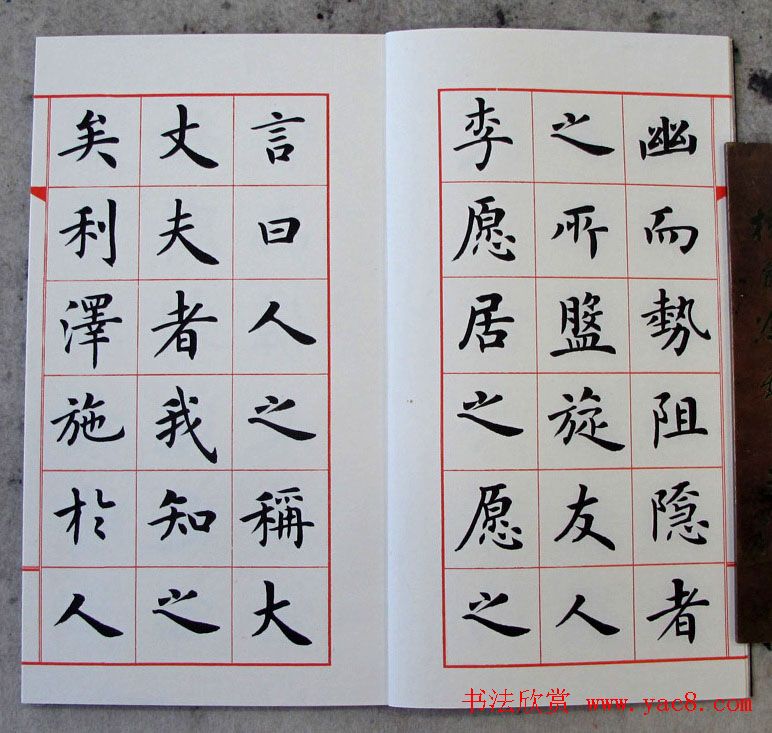 幽而勢阻隐者
之所盤旋友人
李愿居之愿之
言曰人之稱大
丈夫者我知之
矣利澤施於人
书法欣赏 www.yac8.com